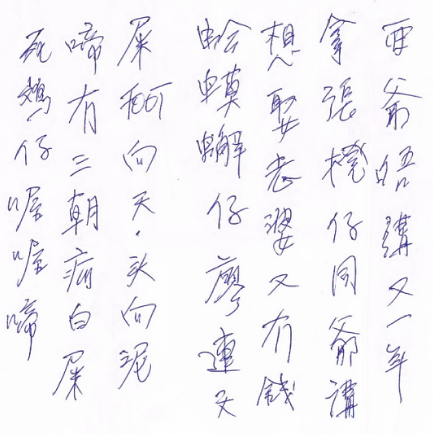 爺唔講又一年
拿張櫈仔同爺講
想娶老婆又有錢
蛤蟆蠏仔廖連天
屎向天.头向泥
啼有三朝痾白屎
死鷄仔喔喔啼